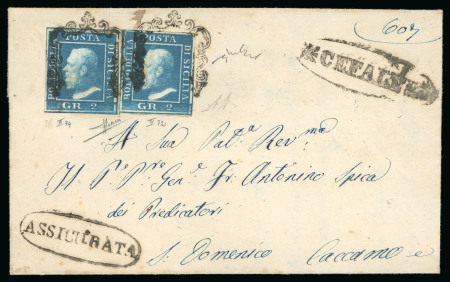 607
POSTA
DI SICILIA
BOLLO DELLA
GR. 2
POSTA
DI SICILIA
BOLLO DELLA
GR. 2
CEFALÙ
A Sua Pat.ª Rev.ma
Il P.re Gen.e Fr. Antonino Spica
dei Predicatori
ASSICURATA
S. Domenico Caccamo